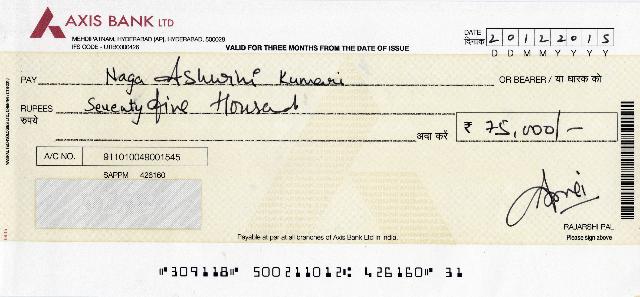 AXIS BANK LTD
MEHDIPATNAM, HYDERABAD [AP], HYDERABAD, 500028
IFS CODE - UTIB0000426
VALID FOR THREE MONTHS FROM THE DATE OF ISSUE
DATE
दिनांक
20122015
D D M M Y Y Y Y
PAY Naga Ashurhi Kumari OR BEARER / या धारक को
RUPEES Seventy five Housand
रुपये
अदा करें
₹ 75,000/-
A/C NO. 911010049001545
SAPPM 426160
RAJARSHI PAL
Please sign above
Payable at par at all branches of Axis Bank Ltd in India.
⑈309118⑈ 500211012⑆ 426160⑈ 31